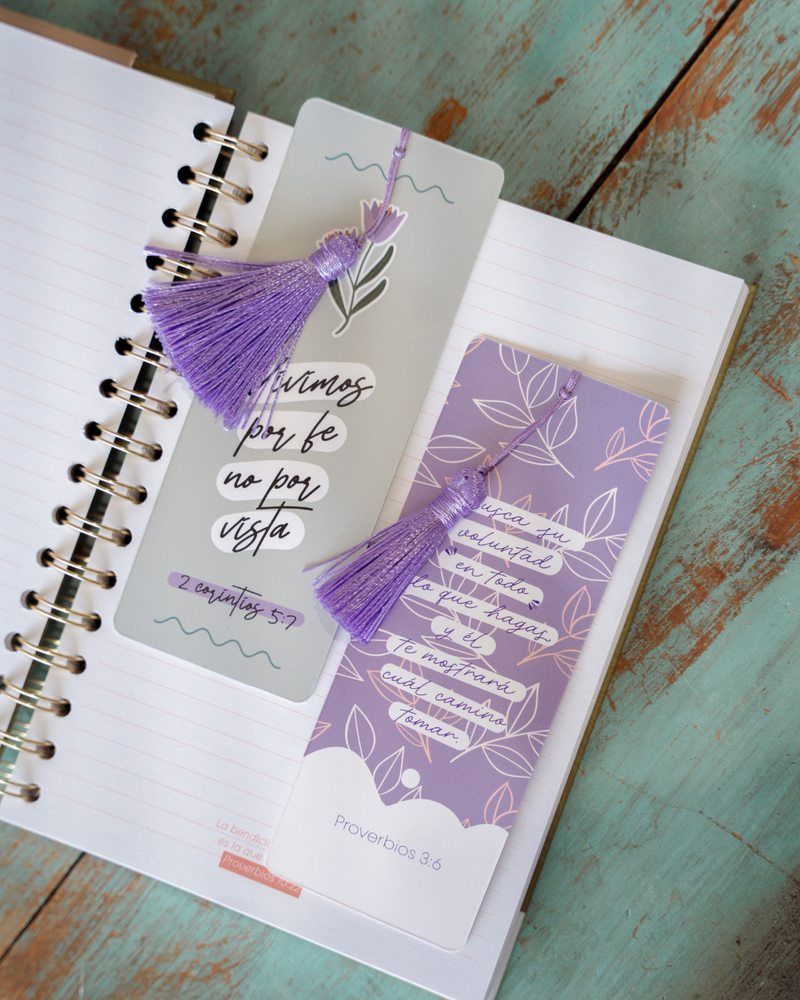 Vivimos
por fe
no por
vista
2 corintios 5:7
Busca su
voluntad
en todo
lo que hagas,
y él
te mostrará
cuál camino
tomar.
Proverbios 3:6
La
es la que
Proverbios 10:22